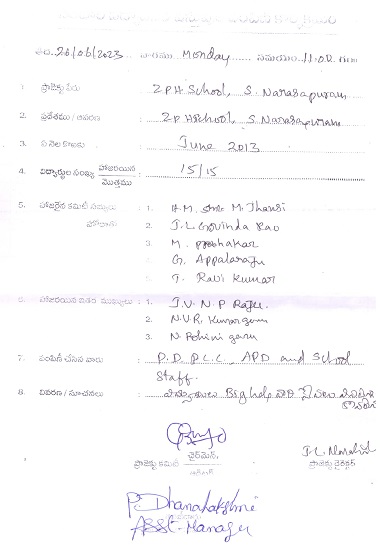 తేది. 26/06/2023 వారము Monday సమయం. 11.00 గంట
1. ప్రాజెక్టు పేరు : ZPH School, S. Narasapuram
2. ప్రదేశము / ఆవరణ : ZPHSchool, S Narasapuram
3. ఏ నెల కొఱకు : June 2013
4. విద్యార్థుల సంఖ్య హాజరయిన / మొత్తము : 15/15
5. హాజరైన కమిటీ సభ్యులు 1. H.M. M. Jhansi
2. J.L Govinda Rao
3. M. prabhakar
4. G. Appalaraju
5. T. Ravi Kumar
6. హాజరయిన ఇతర ముఖ్యులు : 1. J.V.N.P Raju.
2. N.V.R. Kumar garu
3. N. Pohini garu
7. పంపిణీ చేసిన వారు : P.D. P.L.C., APD and School
Staff.
8. వివరణ / సూచనలు : వారి సేవలు
ప్రాజెక్టు కమిటీ చైర్మెన్, J-L
ప్రాజెక్టు డైరెక్టర్
P. Dhanalakshmi
ASSt-Manager